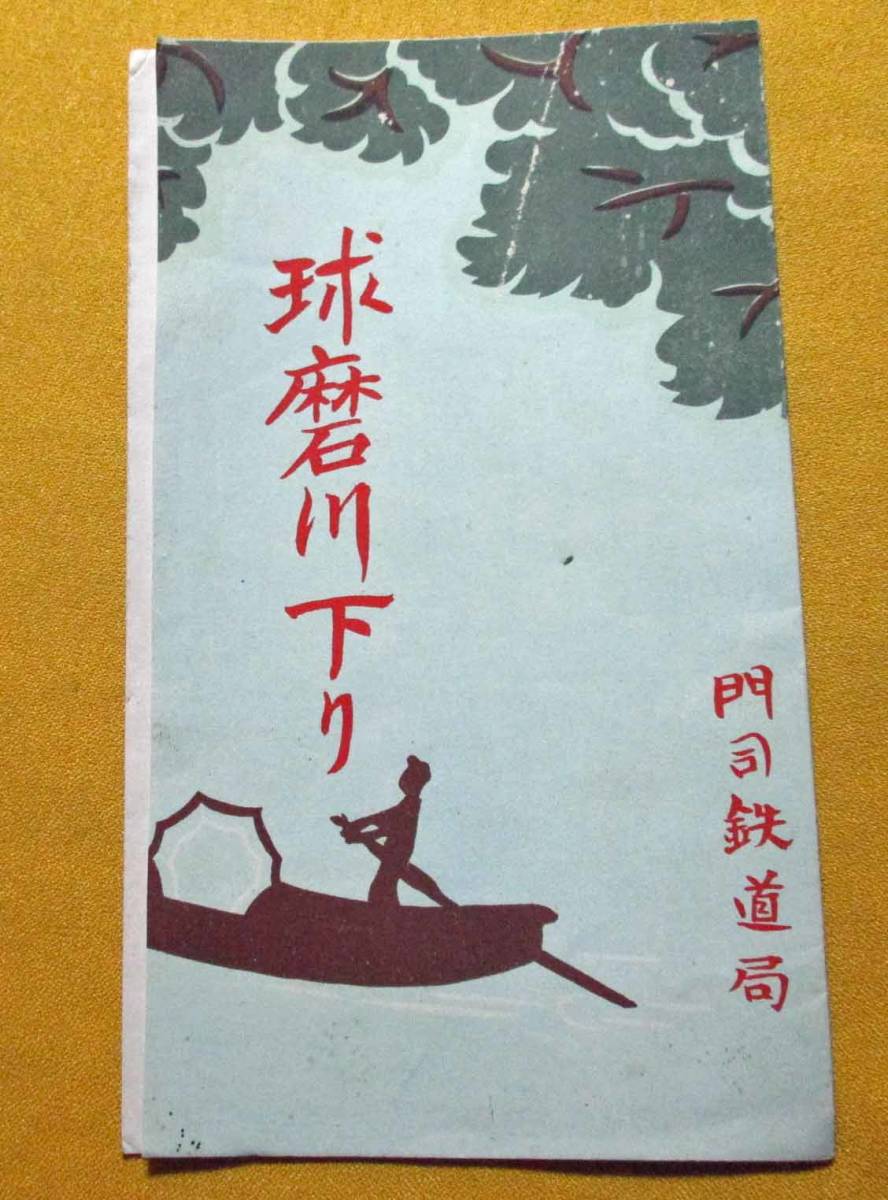 球磨川下り
門司鉄道局